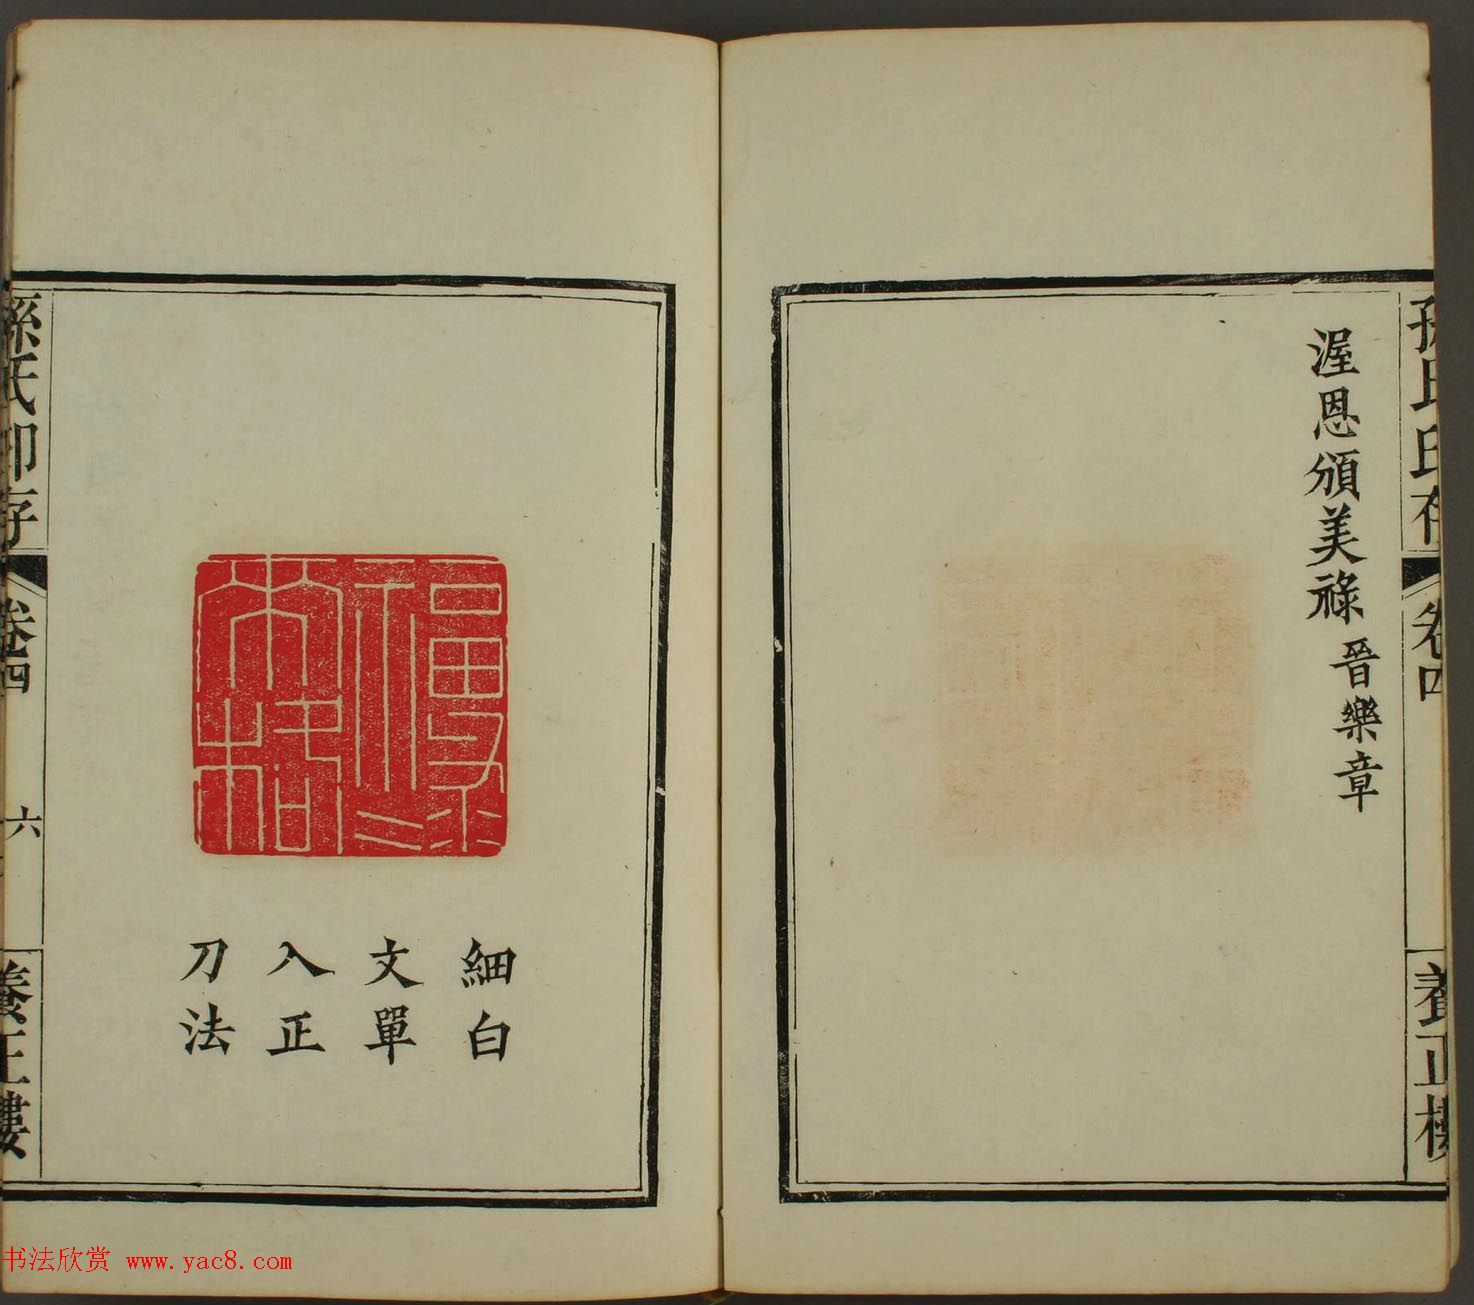 渥恩頒美祿 晉樂章
孫氏印存
卷四
養正樓
細白
文單
入正
刀法
孫氏印存
卷四
六
養正樓
书法欣赏 www.yac8.com